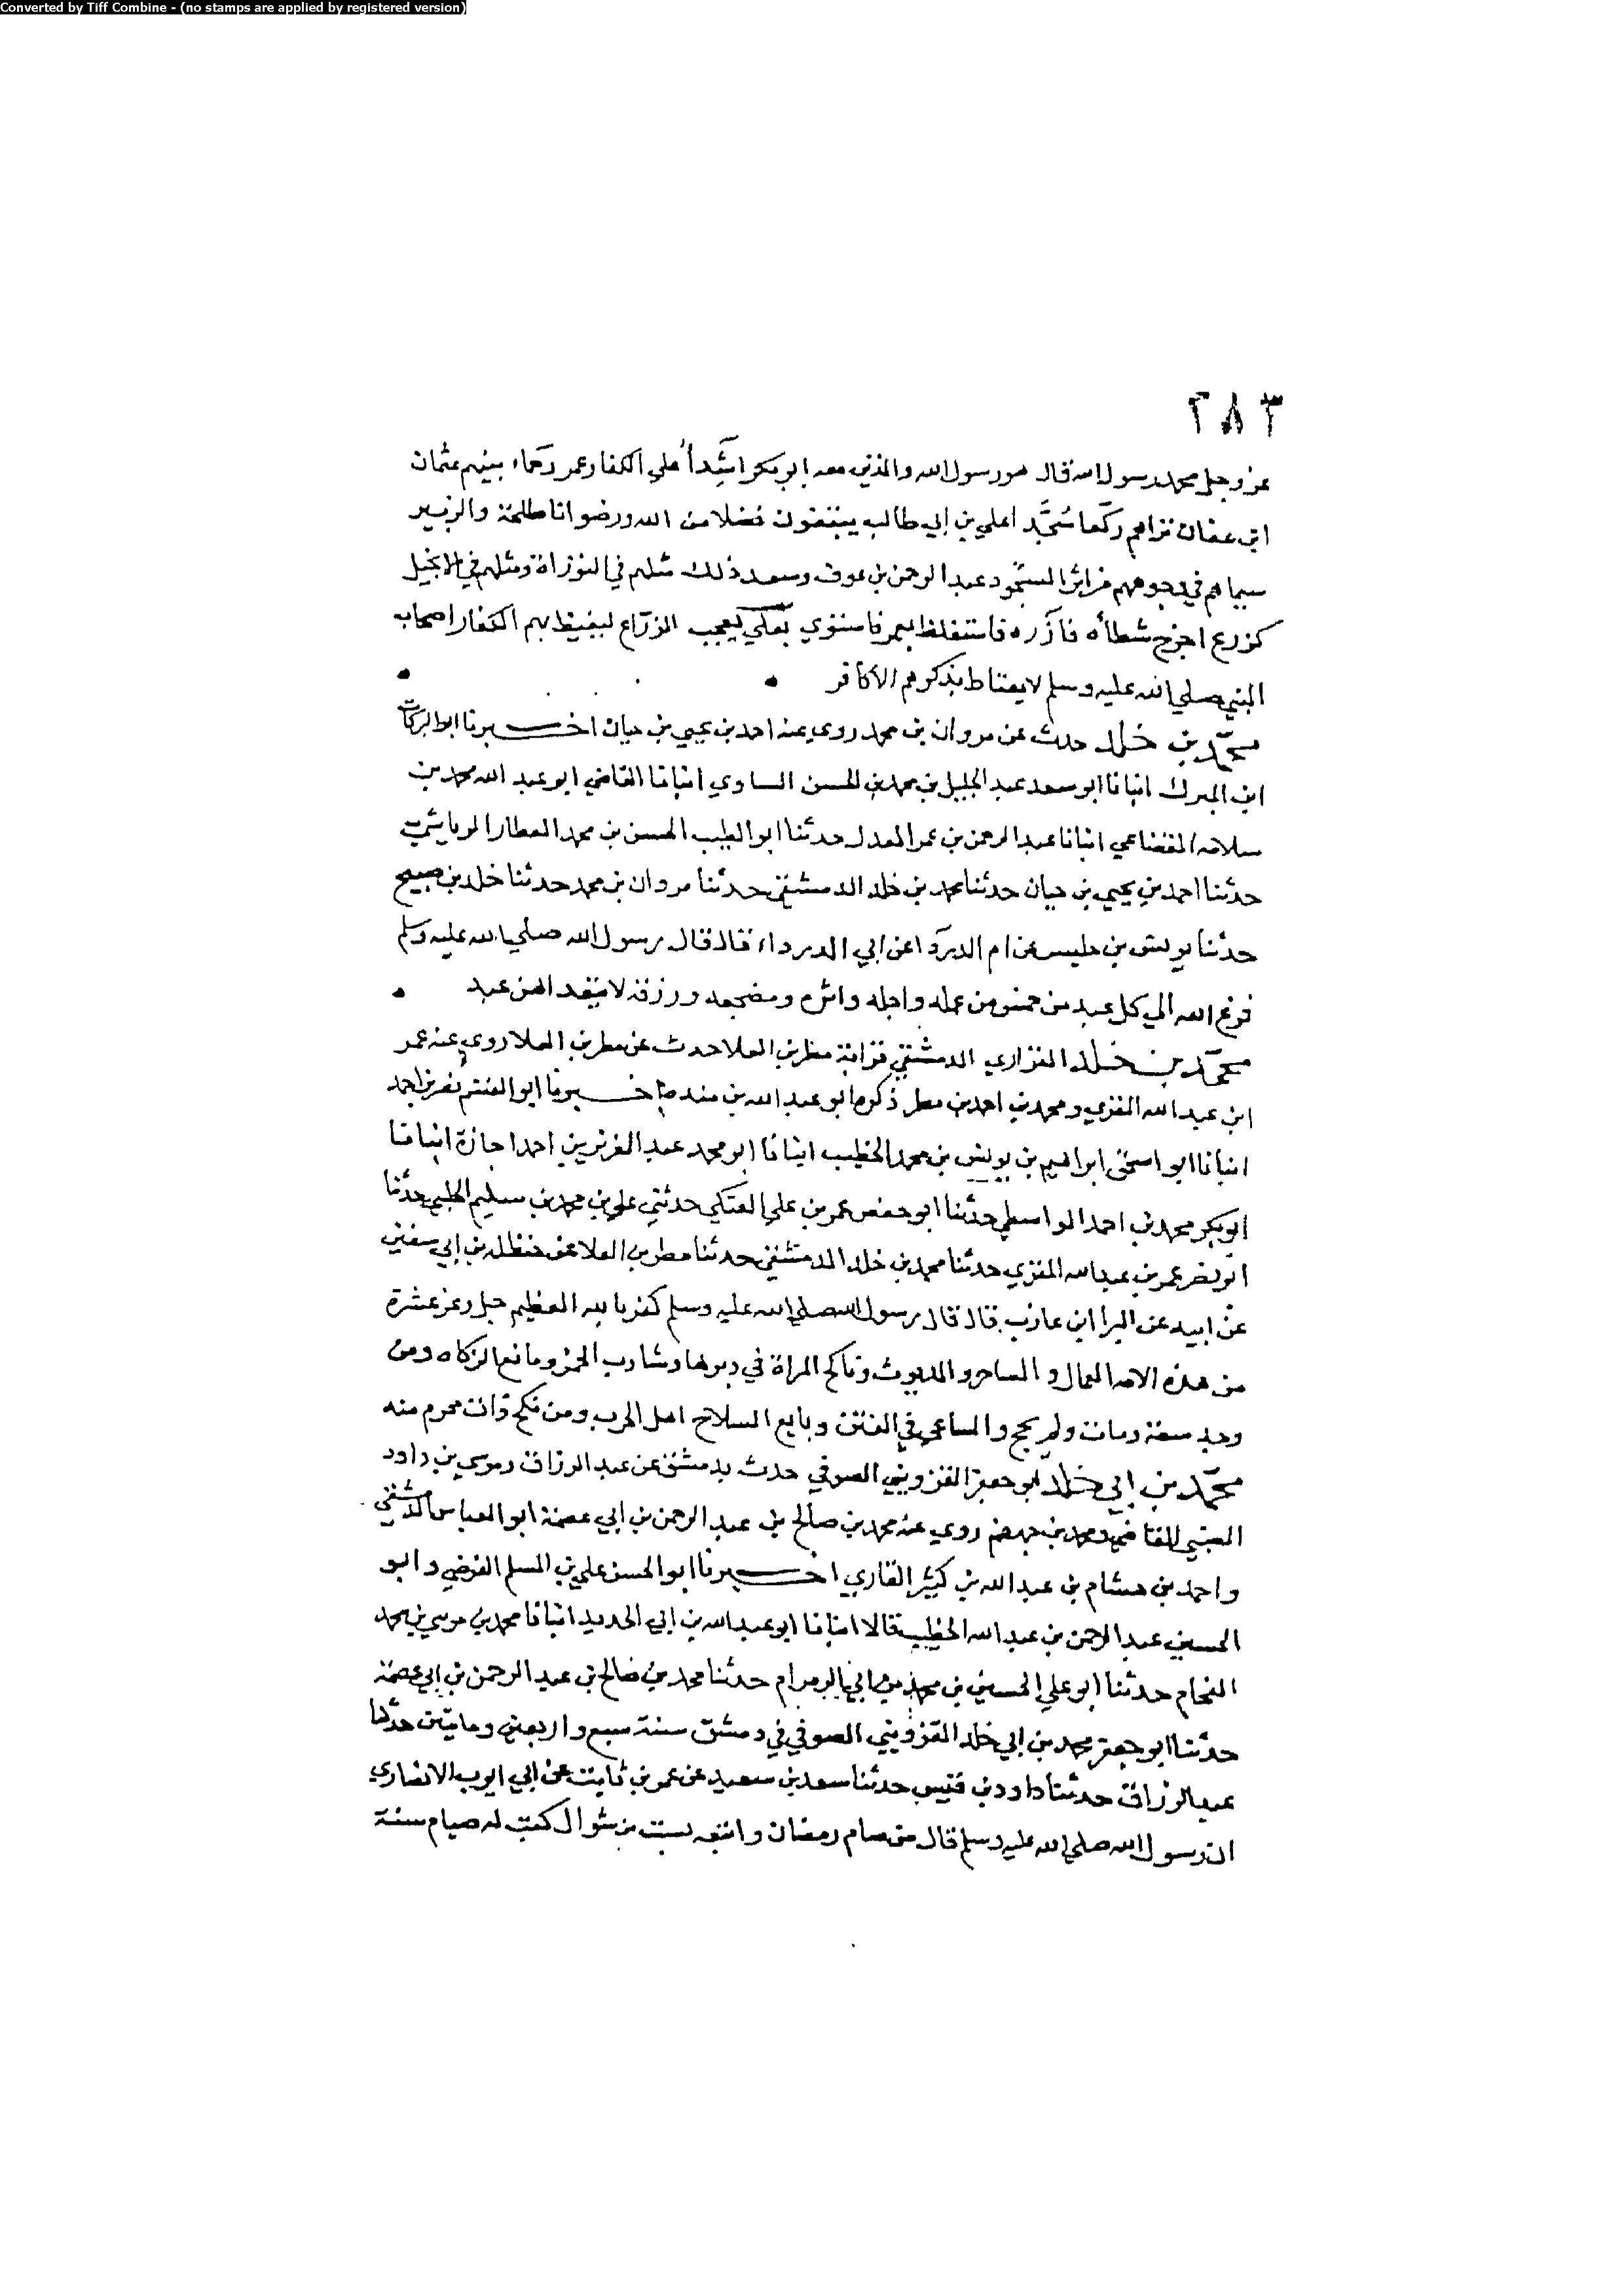 Converted by Tiff Combine - (no stamps are applied by registered version)
٢٨٣
عز وجل محمد رسول الله قال هو رسول الله والذين معه ابو بكر اشدآء علي الكفار عمر رحماء بينهم عثمان
ابن عفان تراهم ركعا سُجَّدا علي بن ابي طالب يبتغون فضلا من الله ورضوانا طلحة والزبير
سيماهم في وجوههم من اثر السجود عبد الرحمن بن عوف وسعد ذلك مثلهم في التوراة ومثلهم في الانجيل
كزرع اخرج شطأه فآزره فاستغلظ بعمر فاستوي بعلي يعجب الزرّاع ليغيظ بهم الكفار اصحاب
النبي صلي الله عليه وسلم لا يغتاظ بذكرهم الا كافر
محمّد بن خلد حدث عن مروان بن محمد روي عنه احمد بن يحيي بن حيان اخبرنا ابو البركات
ابن المبرك انبانا ابو سعد عبد الجليل بن محمد بن الحسن الساوي انبانا القاضي ابو عبد الله محمد بن
سلامه القضاعي انبانا عبد الرحمن بن عمر المعدل حدثنا ابو الطيب الحسن بن محمد العطار
حدثنا احمد بن يحيي بن حيان حدثنا محمد بن خلد الدمشقي حدثنا مروان بن محمد حدثنا خلد بن صبيح
حدثنا يونس بن حلبس عن ام الدردا عن ابي الدرداء قال قال رسول الله صلي الله عليه وسلم
فرغ الله الي كل عبد من خمس من عمله واجله واثره ومضجعه ورزقه لا عبد
محمّد بن خلد الفزاري الدمشقي قرابة مطر بن العلا حدث عن مطر بن العلا روي عنه عمر
ابن عبد الله المقري ومحمد بن احمد بن مطر ذكره ابو عبد الله بن منده اخبرنا ابو الفتح نصر بن احمد
انبانا ابو اسحق ابراهيم بن يونس بن محمد الخطيب انبانا ابو محمد عبد العزيز بن احمد اجازة انبانا
ابو بكر محمد بن احمد الواسطي حدثنا ابو حفص عمر بن علي العتكي حدثني علي بن محمد بن سليم حدثنا
ابو نصر عمر بن عبد الله المقري حدثنا محمد بن خلد الدمشقي حدثنا مطر بن العلا عن حنظله بن ابي سفين
عن ابيه عن البرا ابن عازب قال قال رسول الله صلي الله عليه وسلم كفر بالله العظيم جل وعز عشرة
من هذه الامه الغال والساحر والديوث وناكح المراة في دبرها وشارب الخمر ومانع الزكاه ومن
وجد سعة ومات ولم يحج والساعي في الفتن وبايع السلاح اهل الحرب ومن نكح ذات محرم منه
محمّد بن ابي خلد ابو جعفر القزويني الصوفي حدث بدمشق عن عبد الرزاق وموسي بن داود
الضبي القاضي ومحمد بن جهضم روي عنه محمد بن صالح بن عبد الرحمن بن ابي عصمة ابو العباس الدمشقي
واحمد بن هشام بن عبد الله بن كثير القاري اخبرنا ابو الحسن علي بن المسلم الفرضي وابو
الحسين عبد الرحمن بن عبد الله الخطيب قالا انبانا ابو عبد الله بن ابي الحديد انبانا محمد بن موسي بن محمد
الفحام حدثنا ابو علي الحسين بن محمد بن حدثنا محمد بن صالح بن عبد الرحمن بن ابي عصمة
حدثنا ابو جعفر محمد بن ابي خلد القزويني الصوفي في دمشق سنة سبع واربعين ومايتين حدثنا
عبد الرزاق حدثنا داود بن قيس حدثنا سعد بن سعيد عن عمر بن ثابت عن ابي ايوب الانصاري
ان رسول الله صلي الله عليه وسلم قال من صام رمضان واتبعه بست من شوال كتب له صيام سنة